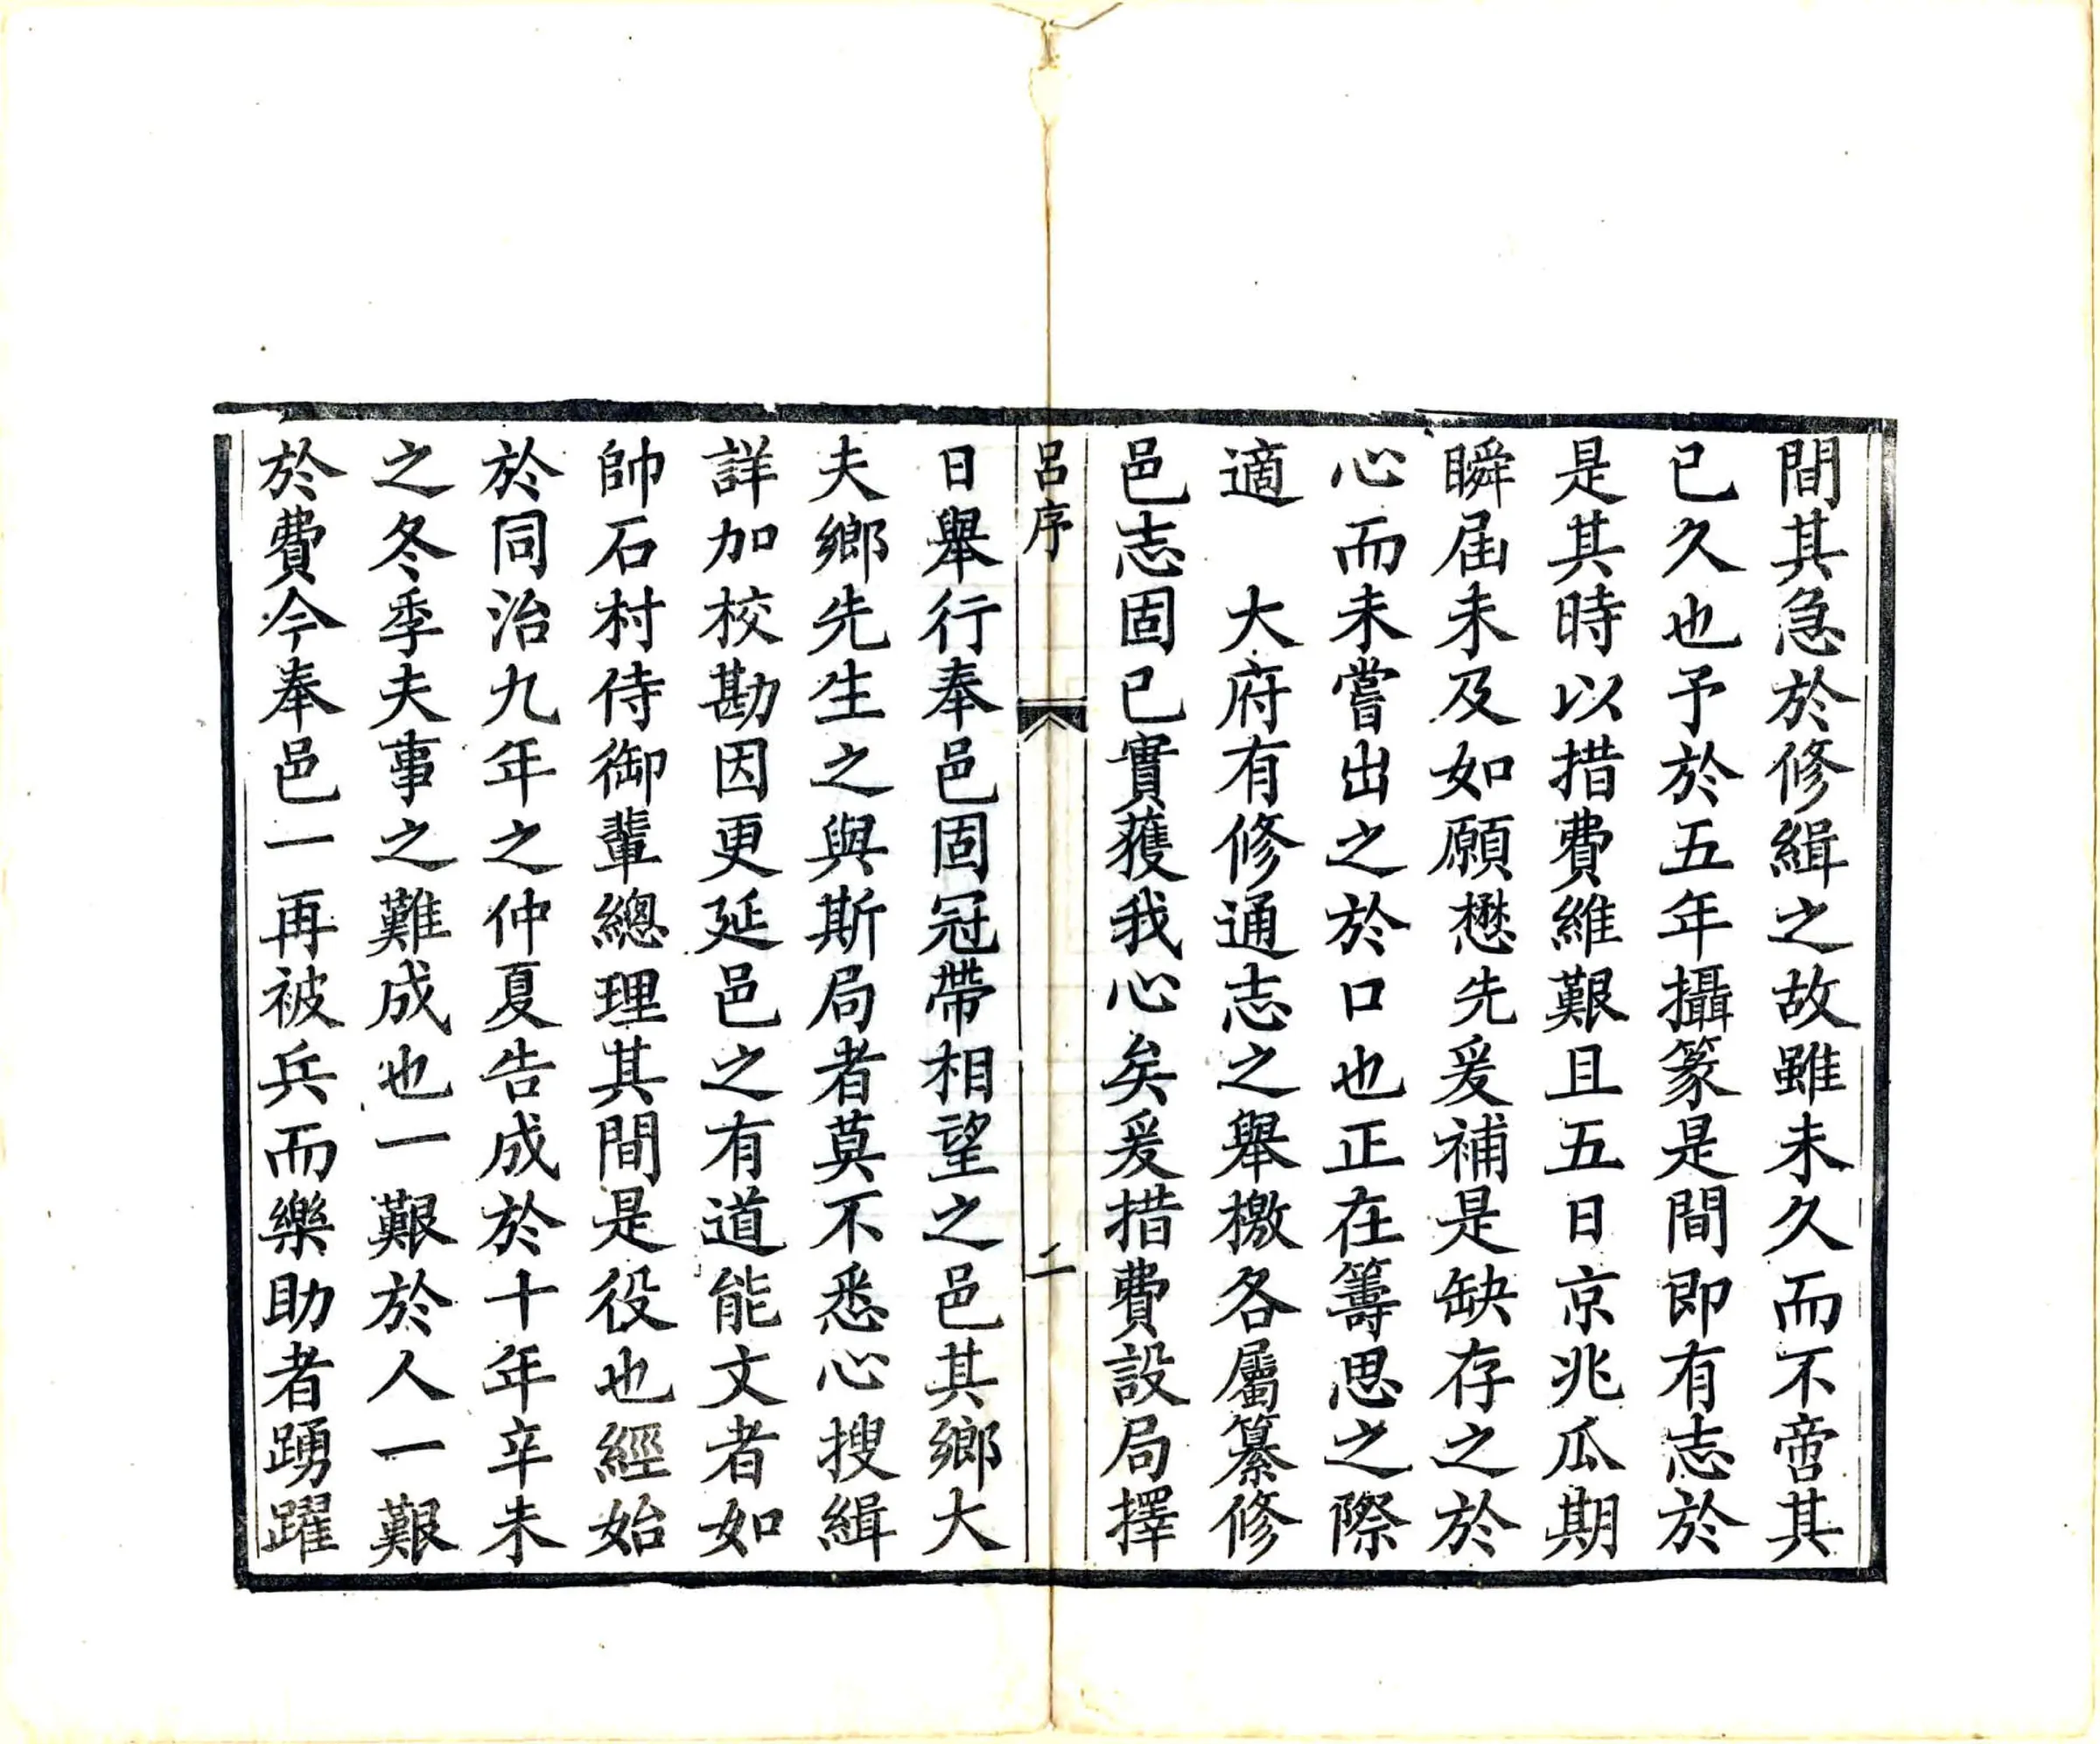 間其急於修緝之故雖未久而不啻其
已久也予於五年攝篆是間即有志於
是其時以措費維艱且五日京兆瓜期
瞬屆未及如願懋先爰補是缺存之於
心而未嘗出之於口也正在籌思之際
適　大府有修通志之舉檄各屬纂修
邑志固已實獲我心矣爰措費設局擇
呂序　二
日舉行奉邑固冠帶相望之邑其鄉大
夫鄉先生之與斯局者莫不悉心搜緝
詳加校勘因更延邑之有道能文者如
帥石村侍御輩總理其間是役也經始
於同治九年之仲夏告成於十年辛未
之冬季夫事之難成也一艱於人一艱
於費今奉邑一再被兵而樂助者踴躍